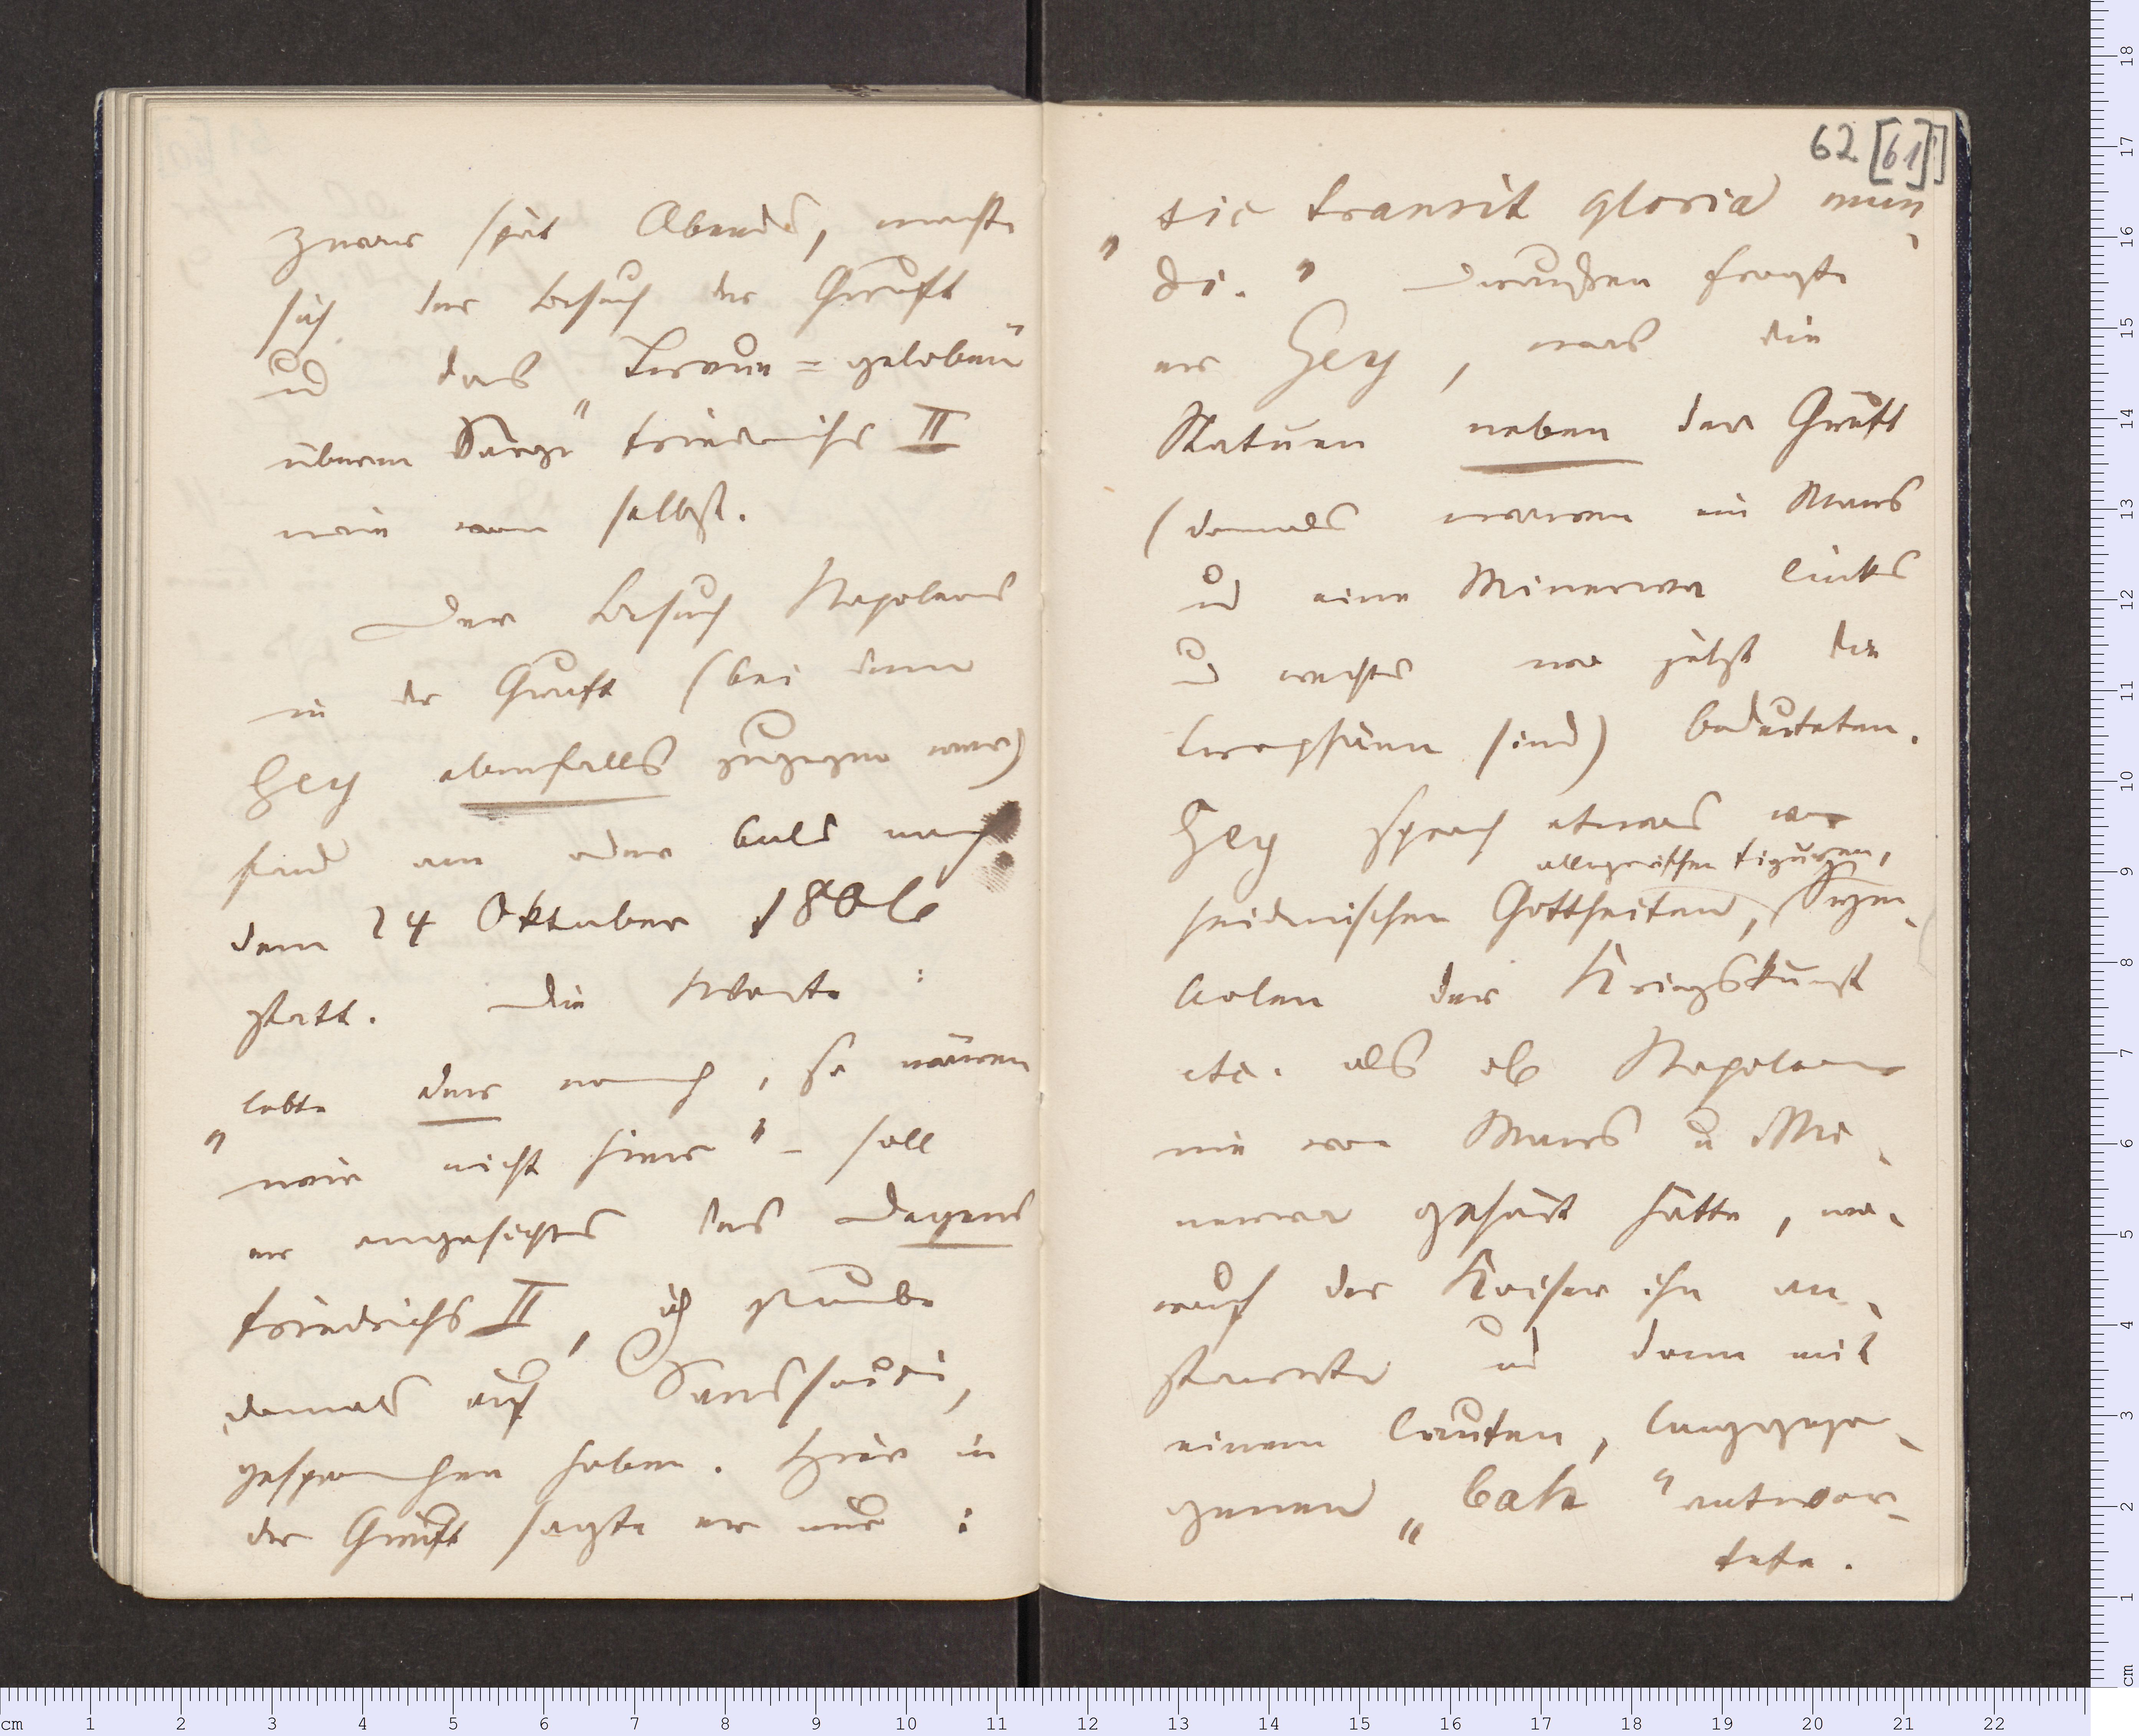 zwar spät Abends, machte
sich der Besuch der Gruft
und das "Treue=geloben"
überm Sarge" Friedrichs II
wie von selbst.
Der Besuch Napoleons
in der Gruft (bei dem
Hey ebenfalls zugegen war)
fand am oder bald nach
dem 24 Oktober 1806
statt. Die Worte:
lebte der noch, so wären
"wir nicht hier" – soll
er angesichts des Degens
Friedrichs II, ich glaube
damals auf Sanssouci,
gesprochen haben. Hier in
der Gruft sagte er nur:
62 [61]
"sic transit gloria mun-
di." Draußen fragte
er Hey, was die
Statuen neben der Gruft
(damals waren ein Mars
und eine Minerva links
und rechts wo jetzt die
Trophäen sind) bedeuteten.
Hey sprach etwas von
allegorischen Figuren,
heidnischen Gottheiten, Sym-
bolen der Kriegskunst
etc. als ob Napoleon
nie von Mars u Mi-
nerva gehört hätte, wo-
rauf der Kaiser ihn an-
starrte und dann mit
einem lauten, langgezo-
genen "bah" antwor-
tete.